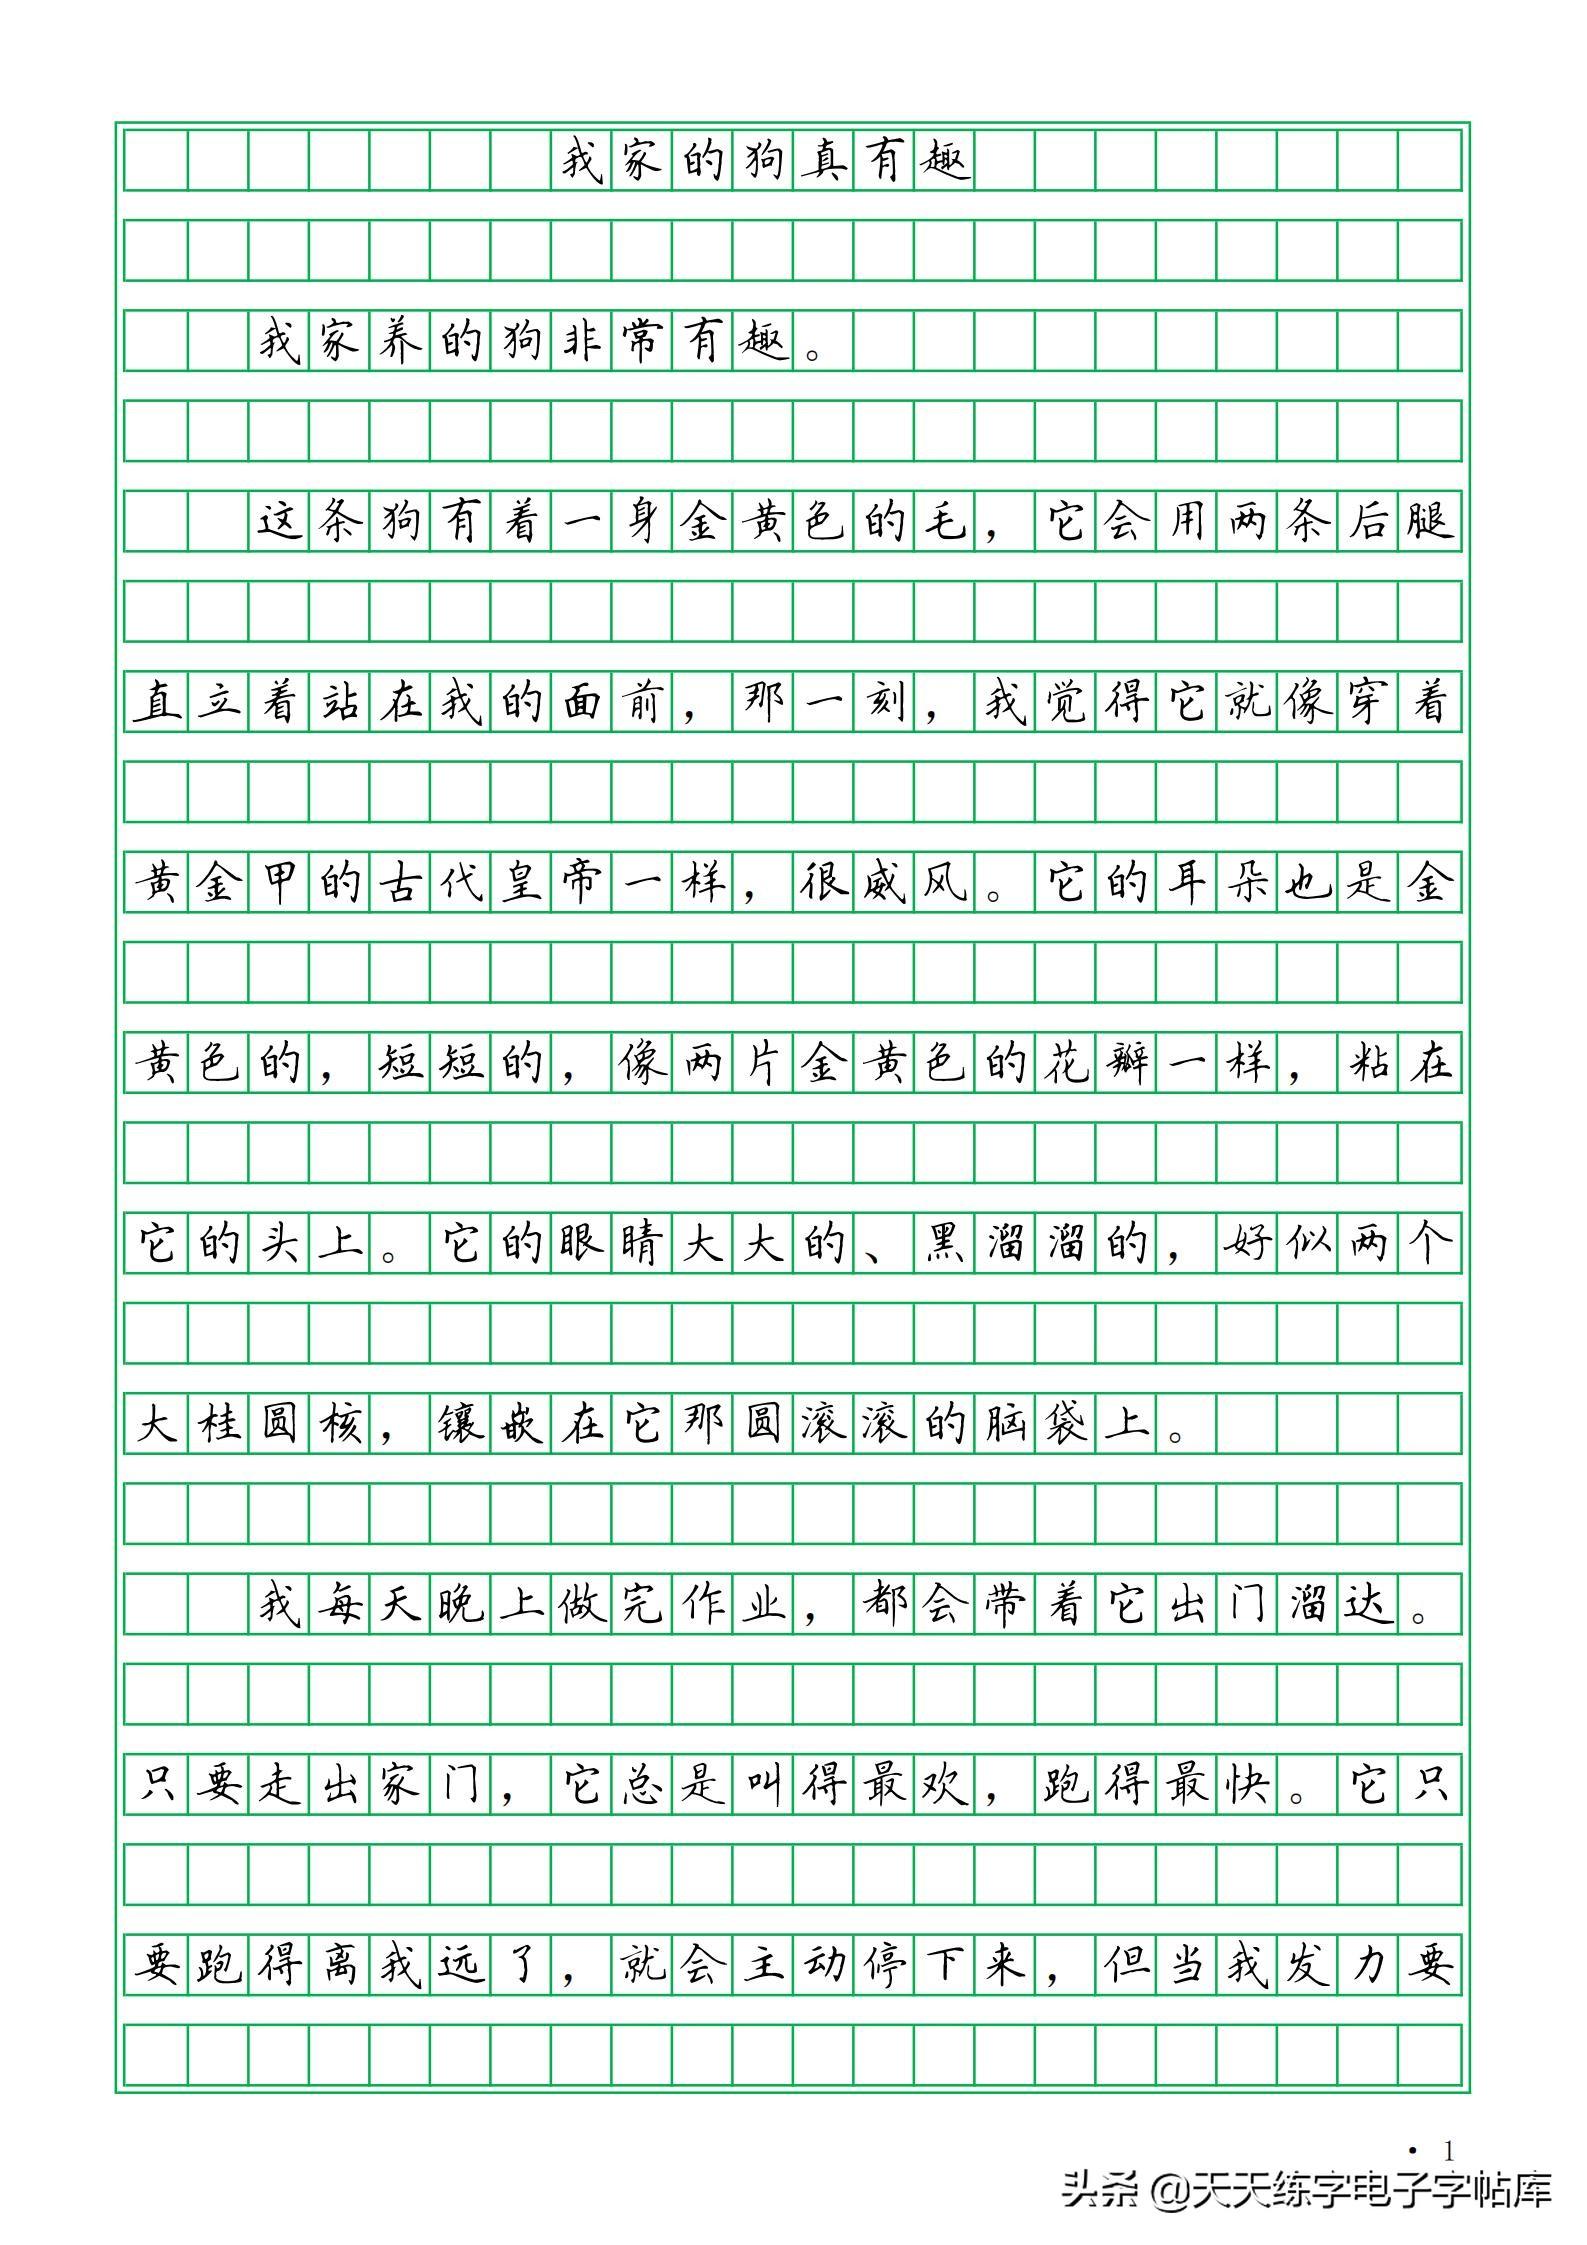 我家的狗真有趣
我家养的狗非常有趣。
这条狗有着一身金黄色的毛，它会用两条后腿
直立着站在我的面前，那一刻，我觉得它就像穿着
黄金甲的古代皇帝一样，很威风。它的耳朵也是金
黄色的，短短的，像两片金黄色的花瓣一样，粘在
它的头上。它的眼睛大大的、黑溜溜的，好似两个
大桂圆核，镶嵌在它那圆滚滚的脑袋上。
我每天晚上做完作业，都会带着它出门溜达。
只要走出家门，它总是叫得最欢，跑得最快。它只
要跑得离我远了，就会主动停下来，但当我发力要
· 1
头条 @天天练字电子字帖库